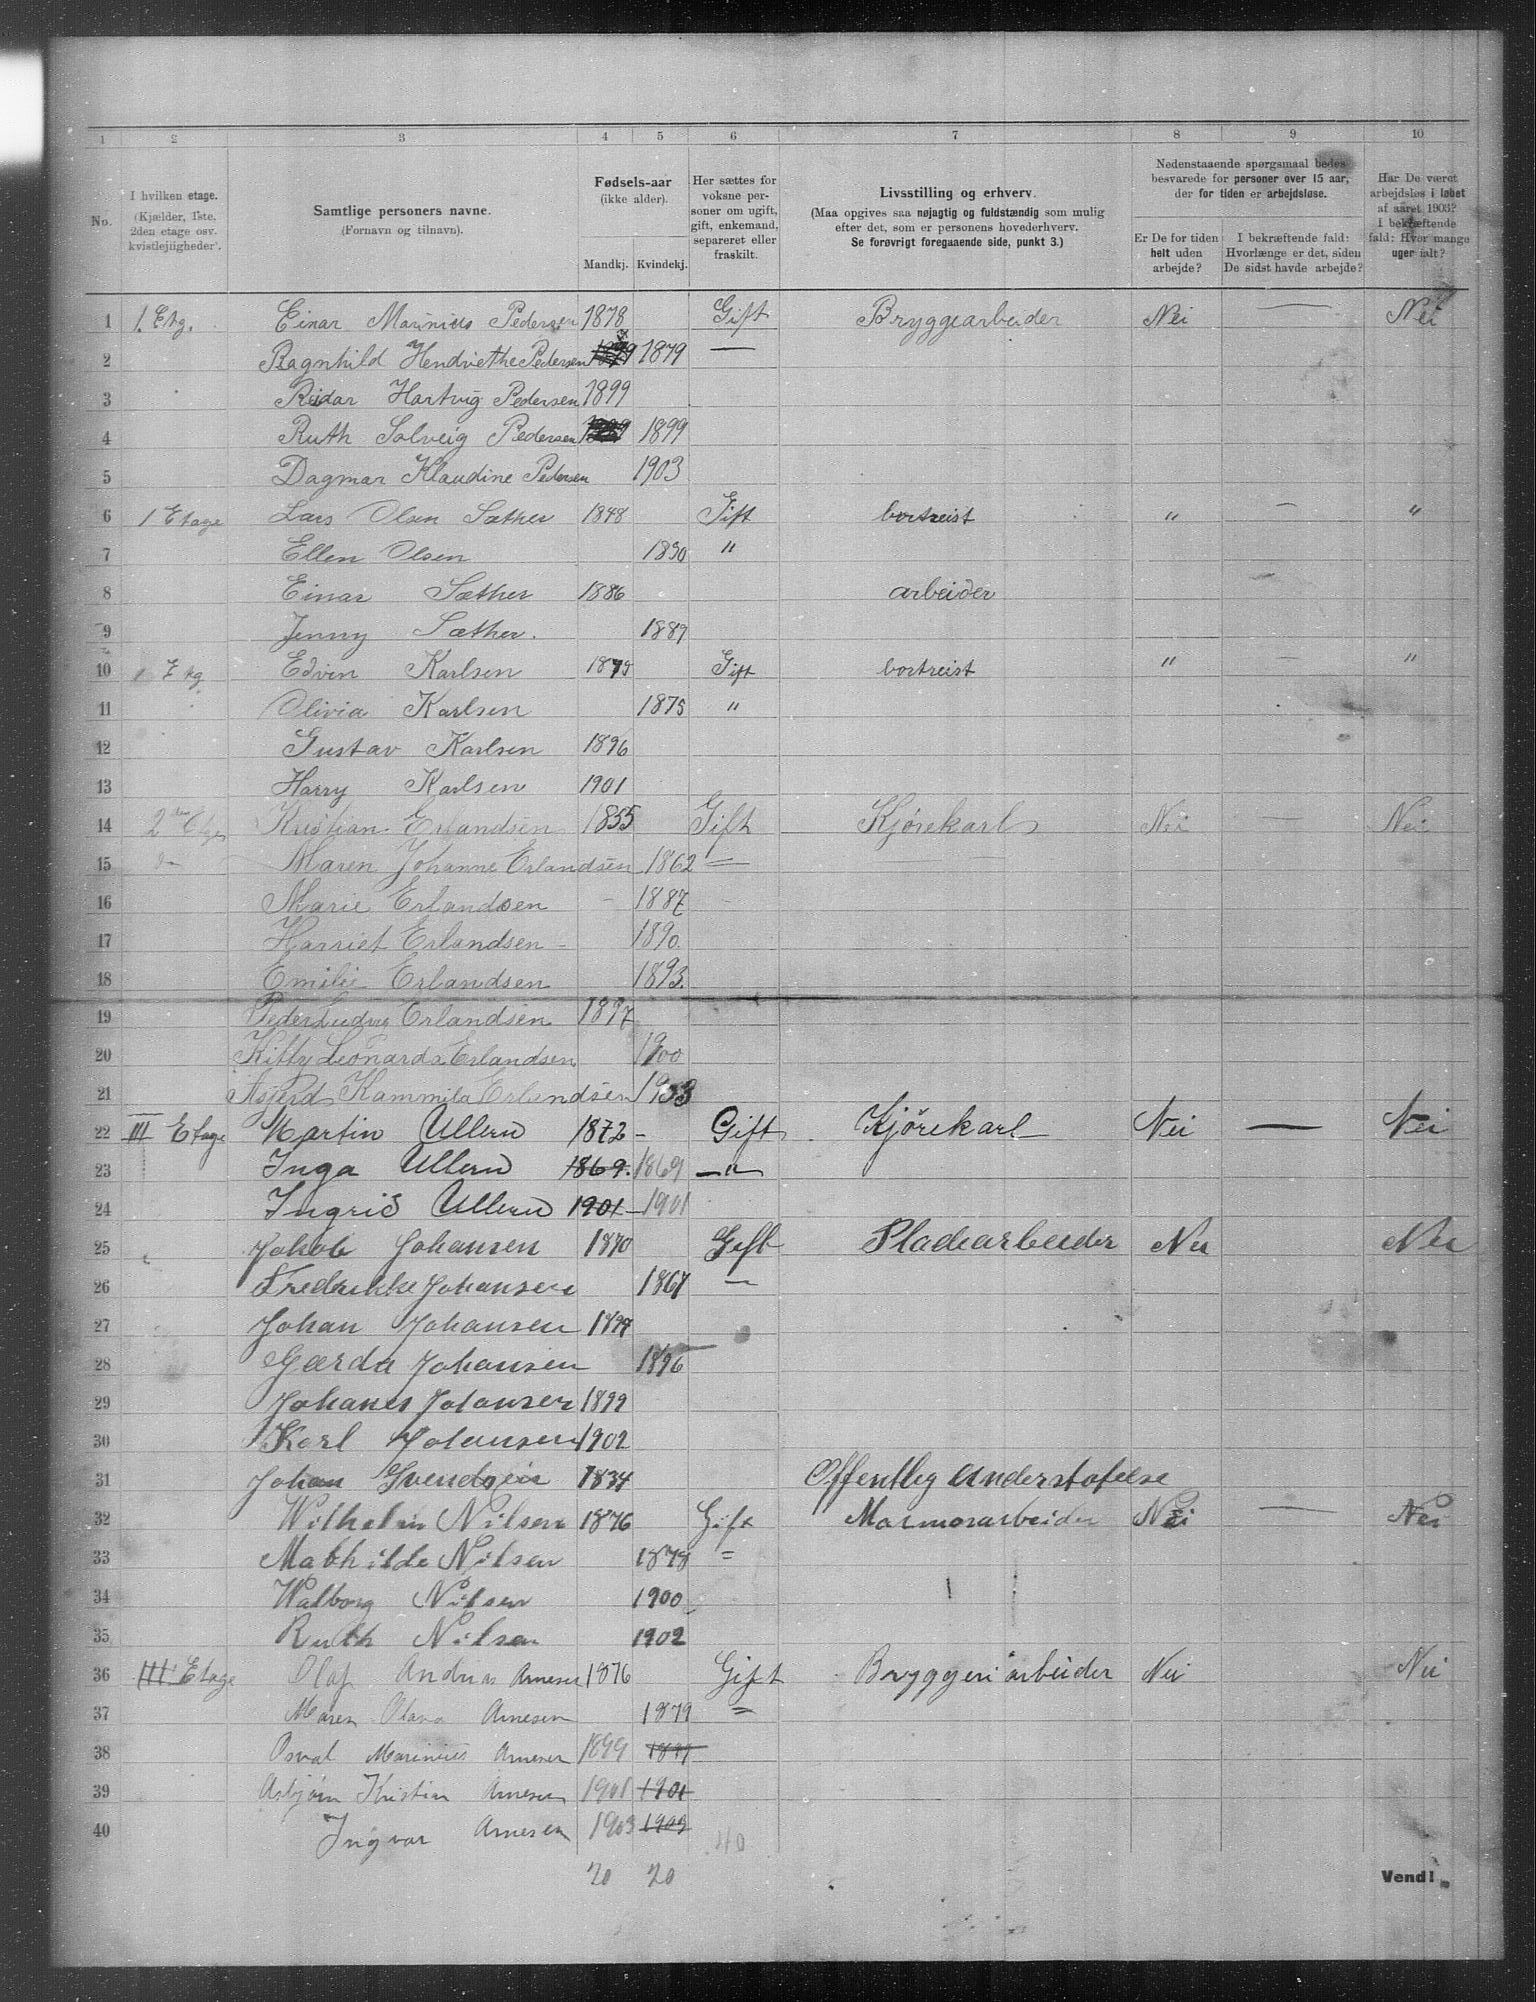 1 2 3 4 5 6 7 8 9 10
No.
I hvilken etage.
(Kjælder, 1ste, 2den etage osv. kvistleiligheder).
Samtlige personers navne.
(Fornavn og tilnavn).
Fødsels-aar
(ikke alder).
Mandkj. Kvindekj.
Her sættes for voksne personer om ugift, gift, enkemand, separeret eller fraskilt.
Livsstilling og erhverv.
(Maa opgives saa nøjagtig og fuldstændig som mulig efter det, som er personens hovederhverv.
Se forøvrigt foregaaende side, punkt 3.)
Nedenstaaende spørgsmaal bedes besvarede for personer over 15 aar, der for tiden er arbejdsløse.
Er De for tiden helt uden arbejde?
I bekræftende fald: Hvorlænge er det, siden De sidst havde arbejde?
Har De været arbejdsløs i løbet af aaret 1903? I bekræftende fald: Hvor mange uger ialt?
1 1. Etg. Einar Marinius Pedersen 1878 Gift Bryggearbeider Nei — Nei
2 Ragnhild Hendriethe Pedersen 1879 —
3 Reidar Hartvig Pedersen 1899
4 Ruth Solveig Pedersen 1899
5 Dagmar Klaudine Pedersen 1903
6 1 Etage Lars Olsen Sæther 1848 Gift bortreist " — "
7 Ellen Olsen 1850 "
8 Einar Sæther 1886 arbeider
9 Jenny Sæther. 1889
10 Edvin Karlsen 1875 Gift bortreist " — "
11 Olivia Karlsen 1875 "
12 Gustav Karlsen 1896
13 Harry Karlsen 1901
14 2den Etge Kristian Erlandsen 1855 Gift Kjørekarl Nei — Nei
15 Maren Johanne Erlandsen 1862 —
16 Marie Erlandsen - 1887 -
17 Harriet Erlandsen - 1890.
18 Emilie Erlandsen 1893.
19 Peder Ludvig Erlandsen 1897
20 Kitty Leonarda Erlandsen 1900
21 Kammila Erlandsen 1903
22 III Etage Martin Ullern 1872 - Gift Kjørekarl Nei — Nei
23 Inga Ullern 1869. 1869 — " —
24 Ingrid Ullern 1901 - 1901
25 Jakob Johansen 1870 Gift Pladearbeider Nei Nei
26 Fredrikke Johansen 1867 —
27 Johan Johansen 1894
28 Gærda Johansen 1896
29 Johanes Johansen 1899
30 Karl Johansen 1902
31 Johan Svendsen 1834 Offentleg Understøtelse
32 Wilhelm Nilsen 1876 Gift Marmorarbeider Nei — Nei
33 Mathilde Nilsen 1878 "
34 Walborg Nilsen 1900
35 Ruth Nilsen 1902
36 III Etage Olaf Andreas Arnesen 1876 Gift Bryggeriarbeider Nei Nei
37 Maren Olava Arnesen 1879 "
38 Osval Marinius Arnesen 1899 1899
39 Asbjørn Kristian Arnesen 1901 1901
40 Ingvar Arnesen 1903 1903
40
20 20
Vend!